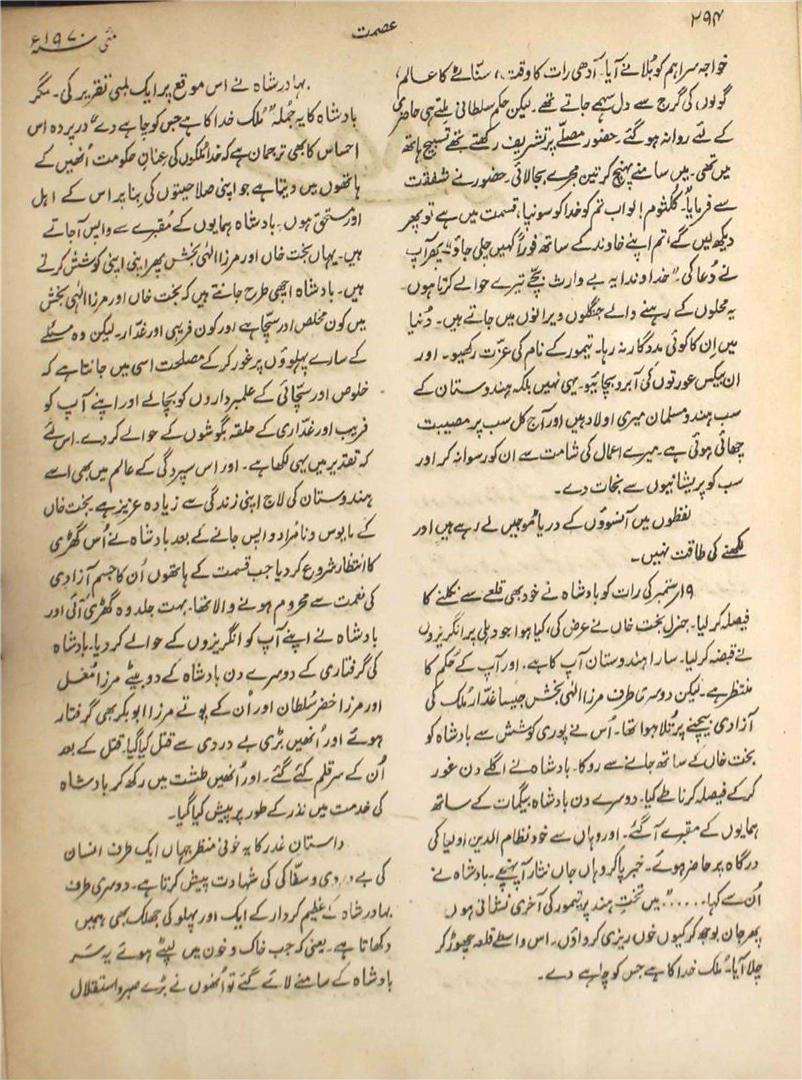 ۲۹۴
عصمت
مئی سنہ ۱۹۷۰ء
خواجہ سرا ہم کو بُلانے آیا۔ آدھی رات کا وقت، سنّاٹے کا عالم،
گولوں کی گرج سے دل سہمے جاتے تھے۔ لیکن حکم سلطانی ملتے ہی حاضری
کے لئے روانہ ہو گئے۔ حضور مصلّے پر تشریف رکھتے تھے تسبیح ہاتھ
میں تھی۔ میں سامنے پہنچ کر تین مجرے بجا لائی۔ حضور نے شفقت
سے فرمایا۔ کلثوم! لو اب تم کو خدا کو سونپا، قسمت میں ہے تو پھر
دیکھ لیں گے، تم اپنے خاوند کے ساتھ فوراً کہیں چلی جاؤ" پھر آپ
نے دُعا کی۔ "خداوندا یہ بے وارث بچّے تیرے حوالے کرتا ہوں۔
یہ محلوں کے رہنے والے جنگلوں ویرانوں میں جاتے ہیں۔ دُنیا
میں اِن کا کوئی مددگار نہ رہا۔ تیمور کے نام کی عزّت رکھیو۔ اور
ان بیکس عورتوں کی آبرو بچائیو۔ یہی نہیں بلکہ ہندوستان کے
سب ہندو مسلمان میری اولاد ہیں اور آج کل سب پر مصیبت
چھائی ہوئی ہے۔ میرے اعمال کی شامت سے ان کو رسوا نہ کر اور
سب کو پریشانیوں سے نجات دے۔
لفظوں میں آنسوؤں کے دریا موجیں لے رہے ہیں اور
لکھنے کی طاقت نہیں۔
۱۹ ستمبر کی رات کو بادشاہ نے خود بھی قلعے سے نکلنے کا
فیصلہ کر لیا۔ جنرل بخت خاں نے عرض کی، کیا ہوا جو دہلی پر انگریزوں
نے قبضہ کر لیا۔ سارا ہندوستان آپ کا ہے۔ اور آپ کے حُکم کا
منتظر ہے۔ لیکن دوسری طرف مرزا الٰہی بخش جیسا غدّار مُلک کی
آزادی بیچنے پر تُلا ہوا تھا۔ اُس نے پوری کوشش سے بادشاہ کو
بخت خاں کے ساتھ جانے سے روکا۔ بادشاہ نے اگلے دن غور
کر کے فیصلہ کرنا طے کیا۔ دوسرے دن بادشاہ بیگمات کے ساتھ
ہمایوں کے مقبرے آ گئے۔ اور وہاں سے خود نظام الدین اولیا کی
درگاہ پر حاضر ہوئے۔ خبر پا کر وہاں جاں نثار آ پہنچے۔ بادشاہ نے
اُن سے کہا ..... "میں تختِ ہند پر تیمور کی آخری نشانی ہوں
پھر جان بوجھ کر کیوں خوں ریزی کرواؤں۔ اس واسطے قلعہ چھوڑ کر
چلا آیا۔ مُلک خدا کا ہے جس کو چاہے دے۔
بہادر شاہ نے اس موقع پر ایک لمبی تقریر کی۔ مگر
بادشاہ کا یہ جُملہ "مُلک خدا کا ہے جس کو چاہے دے" درپردہ اس
احساس کا بھی ترجمان ہے کہ خدا مُلکوں کی عنانِ حکومت اُنھیں کے
ہاتھوں میں دیتا ہے جو اپنی صلاحیتوں کی بنا پر اس کے اہل
اور مستحق ہوں۔ بادشاہ ہمایوں کے مُقبرے سے واپس آ جاتے
ہیں۔ یہاں بخت خاں اور مرزا الٰہی بخش پھر اپنی اپنی کوشش کرتے
ہیں۔ بادشاہ اچھی طرح جانتے ہیں کہ بخت خاں اور مرزا الٰہی بخش
میں کون مخلص اور سچّا ہے اور کون فریبی اور غدّار۔ لیکن وہ مسئلے
کے سارے پہلوؤں پر غور کر کے مصلحت اسی میں جانتا ہے کہ
خلوص اور سچّائی کے علمبرداروں کو بچا لے اور اپنے آپ کو
فریب اور غدّاری کے حلقہ بگوشوں کے حوالے کر دے۔ اس لئے
کہ تقدیر میں یہی لکھا ہے۔ اور اس سپردگی کے عالم میں بھی اسے
ہندوستان کی لاج اپنی زندگی سے زیادہ عزیز ہے۔ بخت خاں
کے مایوس و نامُراد واپس جانے کے بعد بادشاہ نے اُس گھڑی
کا انتظار شروع کر دیا جب قسمت کے ہاتھوں اُن کا جسم آزادی
کی نعمت سے محروم ہونے والا تھا۔ بہت جلد وہ گھڑی آئی اور
بادشاہ نے اپنے آپ کو انگریزوں کے حوالے کر دیا۔ بادشاہ
کی گرفتاری کے دوسرے دن بادشاہ کے دو بیٹے مرزا مُغل
اور مرزا خضر سُلطان اور اُن کے پوتے مرزا ابوبکر بھی گرفتار
ہوئے اور اُنھیں بڑی بے دردی سے قتل کیا گیا۔ قتل کے بعد
اُن کے سر قلم کئے گئے۔ اور اُنھیں طشت میں رکھ کر بادشاہ
کی خدمت میں نذر کے طور پر پیش کیا گیا۔
داستانِ غدر کا یہ خونی منظر جہاں ایک طرف انسان
کی بے دردی و سفّاکی کی شہادت پیش کرتا ہے۔ دوسری طرف
بہادر شاہ کے عظیم کردار کے ایک اور پہلو کی جھلک بھی ہمیں
دکھاتا ہے۔ یعنی کہ جب خاک و خون میں لپٹے ہوئے یہ سَر
بادشاہ کے سامنے لائے گئے تو اُنھوں نے بڑے صبر و استقلال